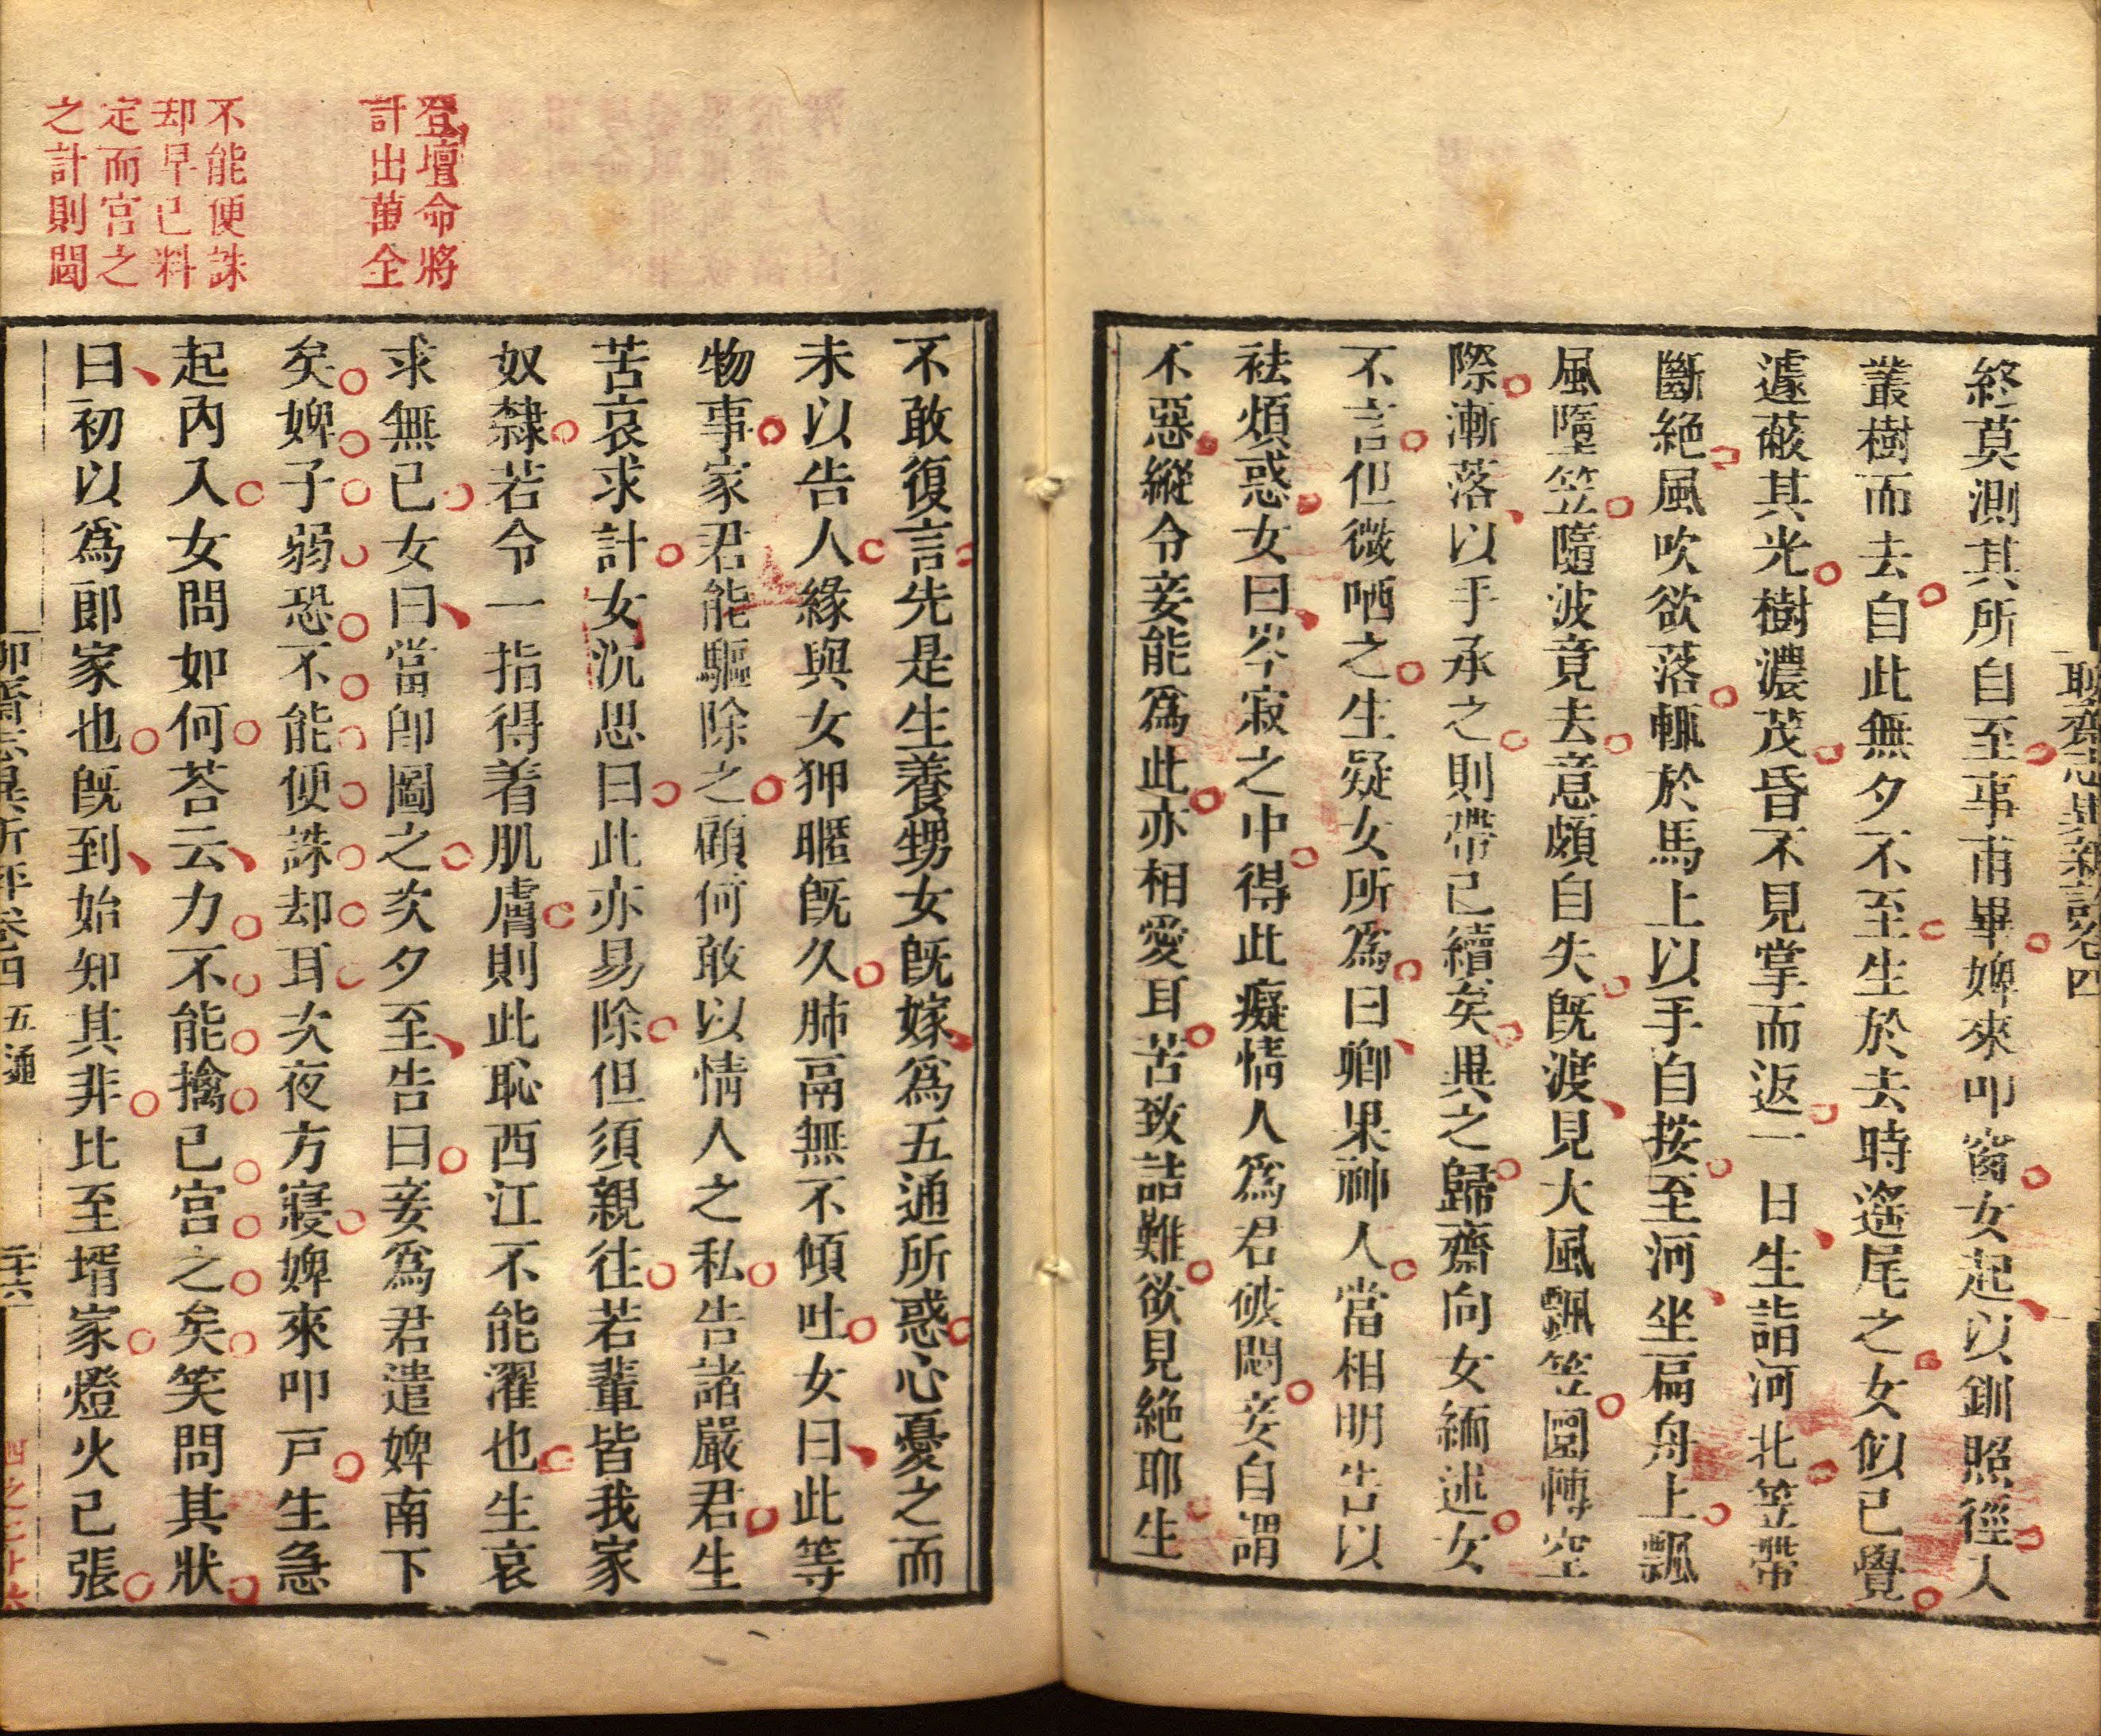 終莫測其所自至事甫畢婢來叩窗女起以釧照徑入
叢樹而去自此無夕不至生於去時遙尾之女似已覺
遽蔽其光樹濃茂昏不見掌而返一日生詣河北笠帶
斷絕風吹欲落輒於馬上以手自按至河坐扁舟上飄
風墮笠隨波竟去意頗自失旣渡見大風飄笠團轉空
際漸落以手承之則帶已續矣異之歸齋向女緬述女
不言但微哂之生疑女所爲曰卿果神人當相明告以
袪煩惑女曰岑寂之中得此癡情人爲君破悶妾自謂
不惡縱令妾能爲此亦相愛耳苦致詰難欲見絶耶生
登壇命將
計出萬全
不能便誅
却早已料
定而宮之
之計則閟
不敢復言先是生養甥女旣嫁爲五通所惑心憂之而
未以告人緣與女狎暱旣久肺鬲無不傾吐女曰此等
物事家君能驅除之顧何敢以情人之私告諸嚴君生
苦哀求計女沉思曰此亦易除但須親往若輩皆我家
奴隸若令一指得着肌膚則此恥西江不能濯也生哀
求無已女曰當卽圖之次夕至告曰妾爲君遣婢南下
矣婢子弱恐不能便誅却耳次夜方寢婢來叩戸生急
起內入女問如何荅云力不能擒已宮之矣笑問其狀
曰初以爲郎家也旣到始知其非比至壻家燈火已張
五通